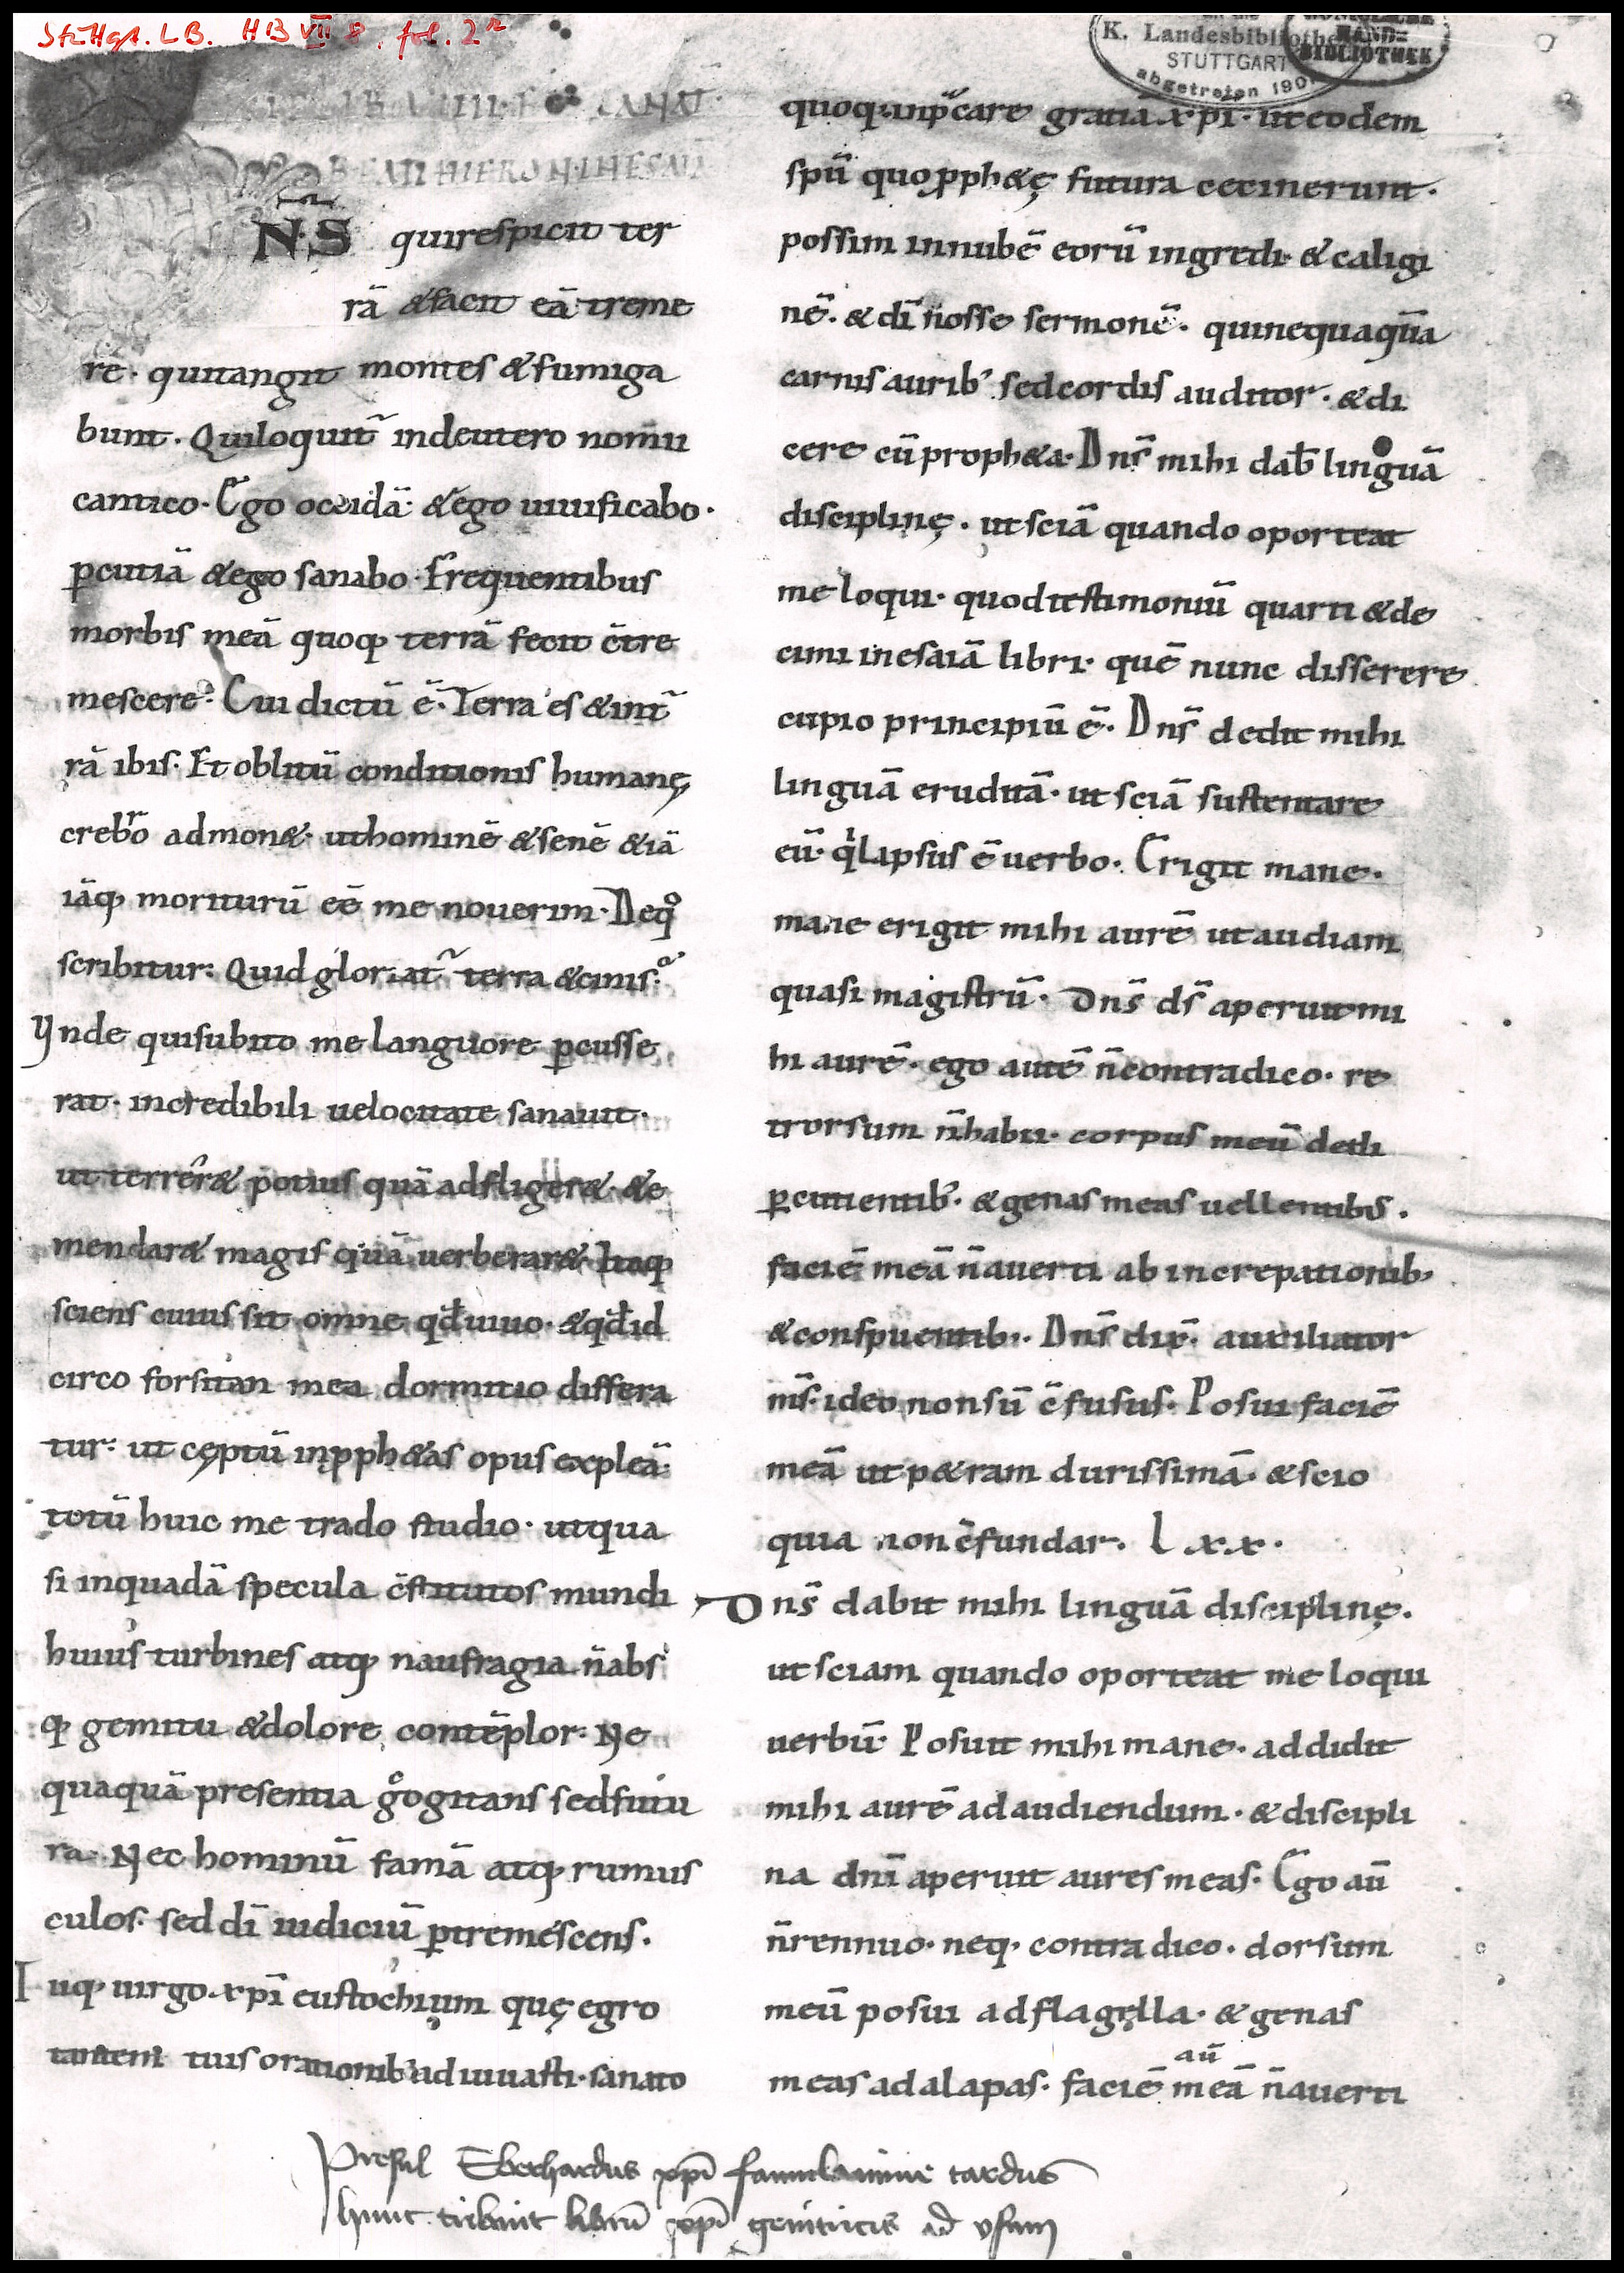 Stuttgt. L.B. HB VII 8, fol. 2r
K. Landesbibliothek
STUTTGART
abgetreten 190
HAND=
BIBLIOTHEK
LIB VIIII
BEATI HIERON IN ESAIA
NS quirespicit ter
rā &facit eā treme
re· quitangit montes &fumiga
bunt· Quiloquit̄ indeutero nomii
cantico· Ego occidā· &ego uiuificabo·
ꝑcutiā &ego sanabo· Frequentibus
morbis meā quoq; terrā fecit c̄tre
mescere· Cui dictū ē· Terra es &int̄
rā ibis· Et oblitū conditionis humanę
crebro admon&· uthominē &senē &iā
iāq; moriturū eē me nouerim· Deqo
scribitur: Quid gloriat̄ terra &cinis?
Vnde quisubito me languore ꝑcusse
rat· incredibili uelocitate sanauit·
ut terrer& potius quā adfliger&· &e
mendar& magis quā uerberar&· Itaq;
sciens cuius sit omne qđ uiuo· &qđ id
circo forsitan mea dormitio differa
tur: ut cęptū inꝓph&as opus expleā·
totū huic me trado studio· utqua
si inquadā specula c̄stitutos mundi
huius turbines atq; naufragia n̄ abs
q; gemitu &dolore contēplor· Ne
quaquā presentia cogitans sedfutu
ra· Nec hominū famā atq; rumus
culos· sed dī iudiciū ꝑtremescens·
Tuq; uirgo xpī eustochium quę egro
tantem tuis orationib; adiuuasti· sanato
quoq; inp̄care gratia xpi· ut eodem
spū quo ꝓph&ę futura cecinerunt·
possim innubē eorū ingredi· &caligi
nē· &dī nosse sermonē· quinequaquā
carnis aurib; sedcordis auditor· &di
cere cū proph&a· Dns̄ mihi dab̄ linguā
disciplinę· ut sciā quando oporteat
me loqui· quod testimoniū quarti &de
cimi inesaiā libri· quē nunc disserere
cupio principiū ē· Dns̄ dedit mihi
linguā eruditā· ut sciā sustentare
eū· qi lapsus ē uerbo· Erigit mane·
mane erigit mihi aurē ut audiam
quasi magistrū· Dns̄ ds̄ aperuit mi
hi aurē· ego autē n̄ contradico· re
trorsum n̄ habii· corpus meū dedi
ꝑcutientib;· &genas meas uellentibs̄·
faciē meā n̄ auerti ab increpationib;
&conspuentib;· Dns̄ dix̄· auxiliator
ms̄· ideo non sū c̄fusus· Posui faciē
meā ut p&ram durissimā· &scio
quia non c̄fundar· Lxx·
Dns̄ dabit mihi linguā disciplinę·
ut sciam quando oporteat me loqui
uerbū· Posuit mihi mane· addidit
mihi aurē ad audiendum· &discipli
na dnī aperuit aures meas· Ego aū
n̄ rennuo· neq; contradico· dorsum
meū posui ad flagęlla· &genas
aū
meas ad alapas· faciē meā n̄ auerti
Presul Eberhardus xpī famulamine tardus
hunc tribuit librū xpī genitricis ad vsum